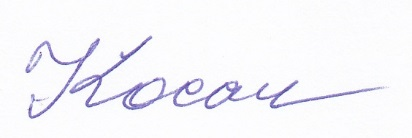 Косач